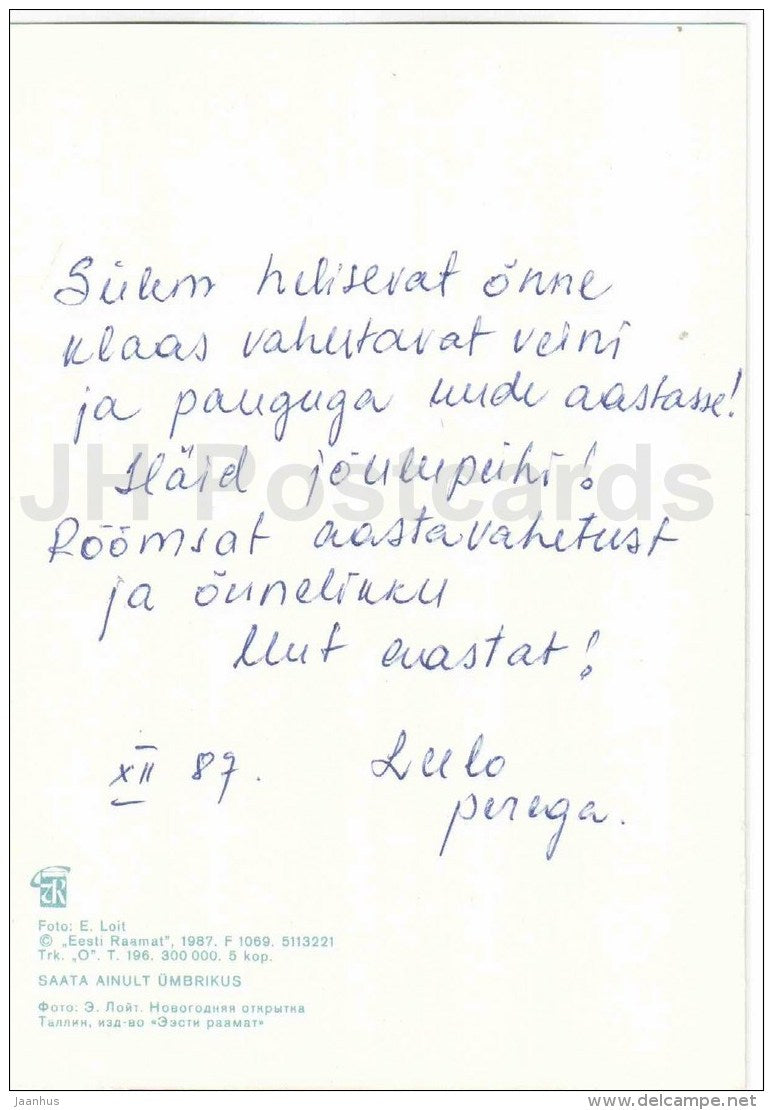 Sülem helisevat õnne
klaas vahutavat veini
ja pauguga uude aastasse!
Häid jõulupühi!
Rõõmsat aastavahetust
ja õnnelikku
Uut aastat!
XII 87.
perega.
JH Postcards
Foto: E. Loit
© „Eesti Raamat", 1987. F 1069. 5113221
Trk. „O". T. 196. 300 000. 5 kop.
SAATA AINULT ÜMBRIKUS
Фото: Э. Лойт. Новогодняя открытка
Таллин, изд-во «Ээсти раамат»
Jaanhus
www.delcampe.net